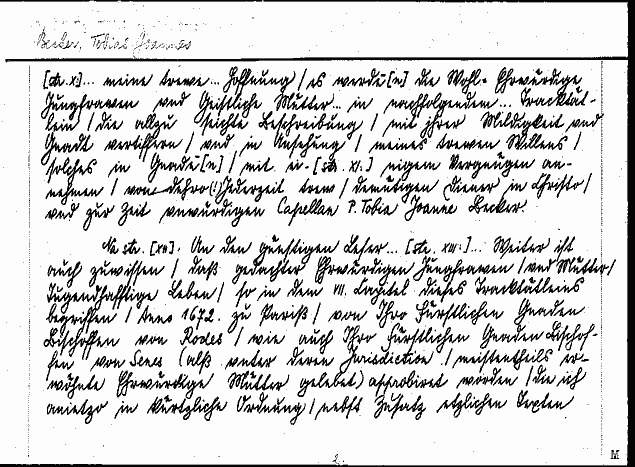 Becker, Tobias Joannes
[str. x]... meine trewe... Hoffnung / es werde[n] die Wohl- Ehrwürdige
Jungfrawen vnd Geistliche Mütter... in nachfolgendem... Tracktät-
lein / die allzu seichte Beschreibung / mit ihrer Mildigkeit vnd
Gnadt vertiffern / vnd in Ansehung / meines trewen Willens /
solches in Gnade[n] / mit ei- [str. XI.] nigem Vergnügen an-
nehmen / von dehro (!) Jederzeit trew / demütigen Diener in Christo /
vnd zur Zeit vnwürdigen Capellan P. Tobia Joanne Becker.
Na str. [XII]. An den günstigen Leser... [str. XIII.]... Weiter ist
auch zuwissen / daß gedachter Ehrwürdigen Jungfrawen / vnd Mütter /
Tugendhafftige Leben / so in dem VII. Capitel dieses Tracktätleins
begriffen / Anno 1672. zu Pariß / von Ihro Fürstlichen Gnaden
Bischoffen von Rodes / wie auch Ihro Fürstlichen Gnaden Bischof-
fen von Senes (alß vnter deren Jurisdiction / meistentheils er-
wöhnte Ehrwürdige Mütter gelebet) approbiret worden / die ich
anietzo in kürtzliche Ordnung / nebst Zusatz etzlichen Texten
2.
M